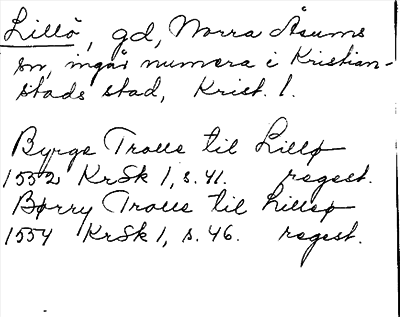 Lillö, gd, Norra Åsums
sn, ingår numera i Kristian-
stads stad, Krist. l.
Byrge Trolle til Lilløø
1552 KrSk 1, s. 41. regest.
Børry Trolle til Lilløø
1554 KrSk 1, s. 46. regest.